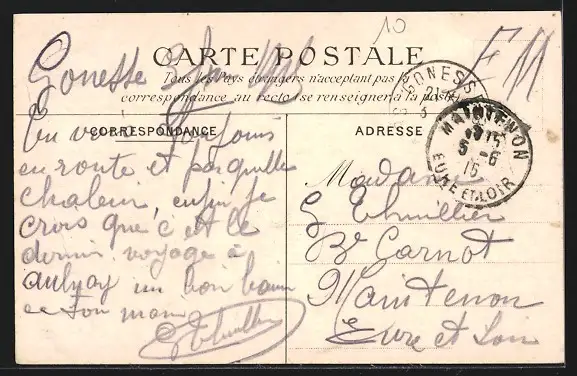 10
CARTE POSTALE
Tous les Pays étrangers n'acceptant pas la
correspondance au recto se renseigner à la poste
F M
Gonesse
CORRESPONDANCE
ADRESSE
GONESSE
MAINTENON
5-6
15
EURE ET LOIR
En voie toujours
en route et pas quelle
chaleur, enfin je
crois que c'est le
dernier voyage à
aulnay un bon baiser
de ton mari
Thuillier
Madame
G Thuillier
Bd Carnot
Maintenon
Eure et Loir